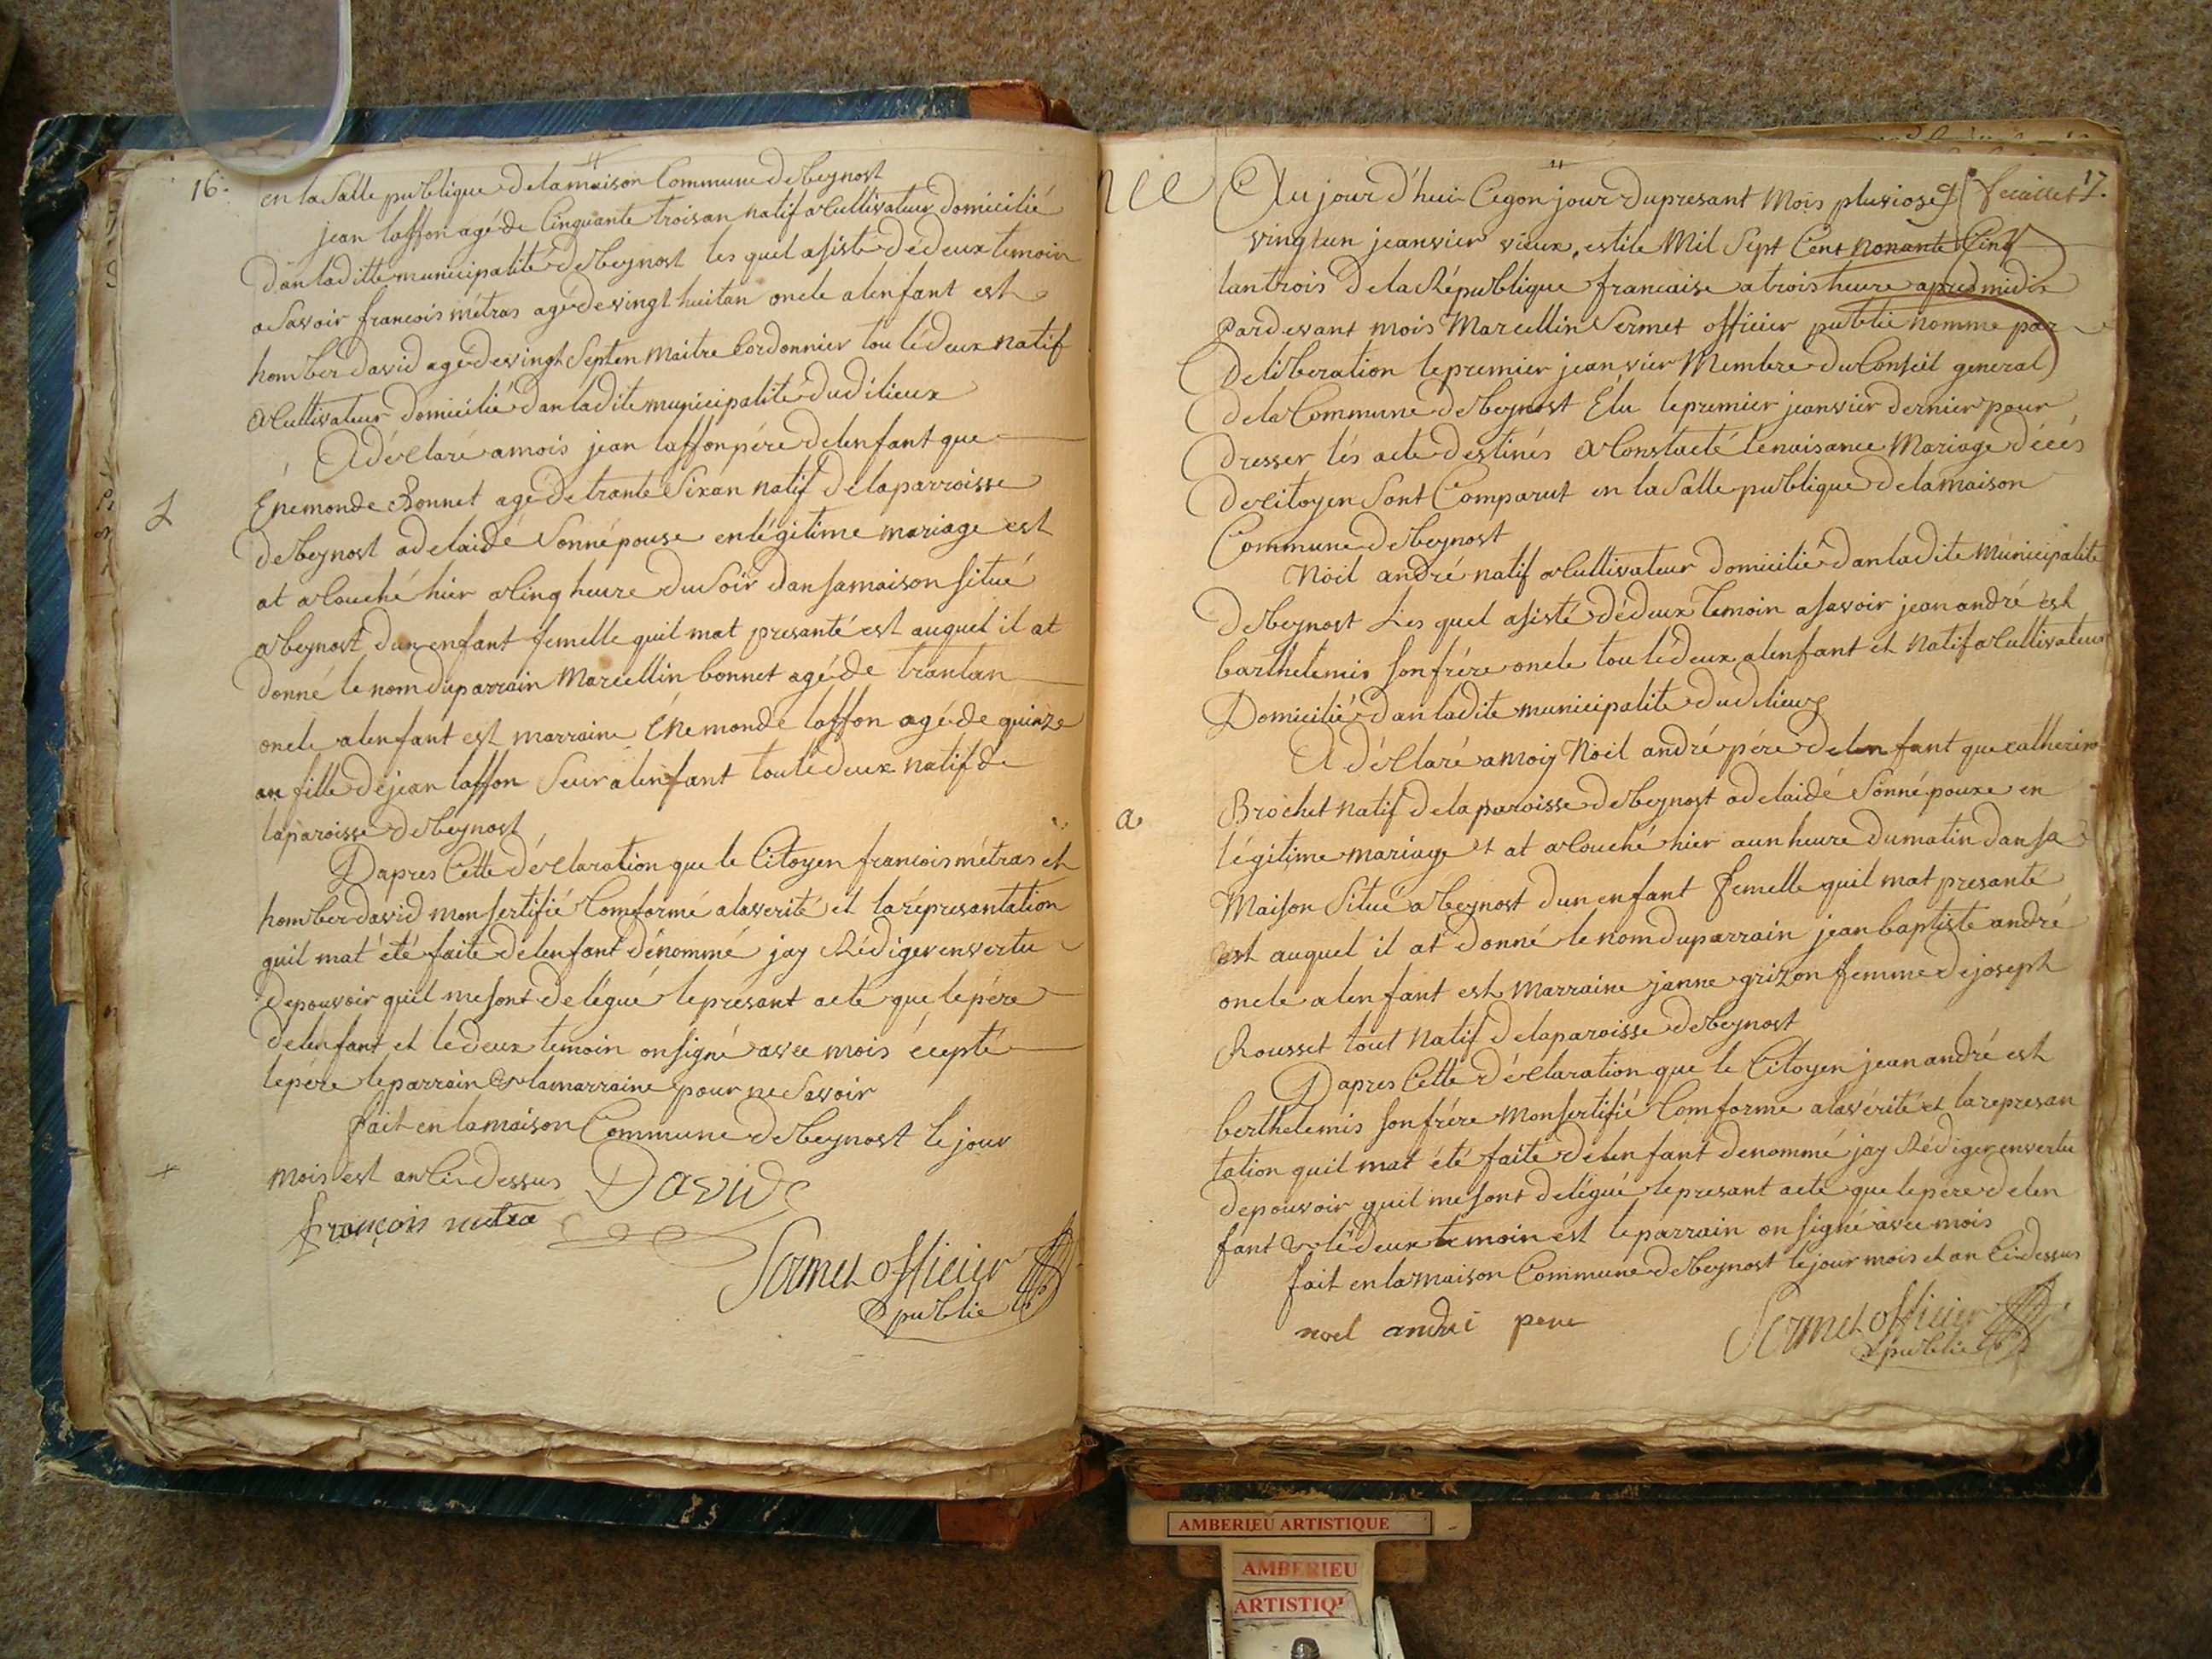 16.
en la Salle publique delamaison Commune debeynost
jean laffon agé de Cinquante troisan natif acultivateur domicilié
danladitte municipalité debeynost les quel asisté dédeux temoin
asavoir francois métras agé devingt huitan oncle alenfant est
homber david agé devingt Septen maitre Cordonnier tou lédeux natif
acultivateur domicilié danladite municipalité dudilieux
A déclaré amois jean laffon pére delenfant que
Enemonde Bonnet agé de trante Sixan natif delaparroisse
L
debeynost adelaidé Sonnépouse enlégitime mariage est
at acouché hier acinq heure duSoir dansamaison Situé
abeynost dun enfant femelle quil mat presanté est auquel il at
donné le nom duparrain Marcellin bonnet agé de trantan
oncle alenfant est marraine Enemonde laffon agé de quinze
an fille dejean laffon Seur alenfant tou lédeux natif de
laparoisse debeynost
Dapres Cette déclaration que le Citoyen francois métras et
homber david monsertifié Comformé alaverité et la représantation
quil mat été faite delenfant dénommé jay Rédiger envertu
depouvoir quil mesont delégué le présant acte que le pére
delenfant et le deux temoin onsigné avec mois écepté
lepére leparrain & lamarraine pour ne Savoir
fait en lamaison Commune debeynost le jour
mois est an Ci dessus David
françois metra
Sermet officier
public
17.
feuillet
Aujourd'hui Cegon jour dupresant Mois pluviose
vingtun jeanvier vieux estile Mil Sept Cent nonante Cinq
lantrois dela République francaise atrois heure apres midis
pardevant mois Marcellin Sermet officier public nomme par
deliberation lepremier jeanvier Membre du Conseil general
dela Commune debeynost Élu lepremier jeanvier dernier pour
dresser lés acte destinés a Constacté lenaisance Mariage décés
decitoyen Sont Comparut en la Salle publique delamaison
Commune debeynost
Noil andré natif acultivateur domicilié danladite municipalité
debeynost Les quel asisté dédeux temoin asavoir jean andré est
barthelemis son frére oncle tou lédeux alenfant et natif acultivateur
Domicilié danladite municipalité dudilieux
A déclaré amois Noil andré pére delenfant que catherine
a
Brochet natif delaparoisse debeynost adelaidé Sonnépouxe en
légitime mariage et at acouché hier aun heure dumatin dansa
Maison Situé abeynost dun enfant femelle quil mat presanté
est auquel il at donné le nom duparrain jean baptiste andré
oncle alenfant est marraine janne grizon femme dejoseph
Rousset tout natif delaparoisse debeynost
Dapres Cette déclaration que le Citoyen jean andré est
berthelemis son frére monsertifié Comforme alavérité et la represan
tation quil mat été faite delenfant denommé jay Rédiger envertu
depouvoir quil mesont delégué lepresant acte que lepere delen
fant & lédeux temoin est leparrain onsigné avec mois
fait en lamaison Commune debeynost lejour mois et an Ci dessus
noel andré pere
Sermet officier
public
AMBERIEU ARTISTIQUE
AMBERIEU
ARTISTIQ